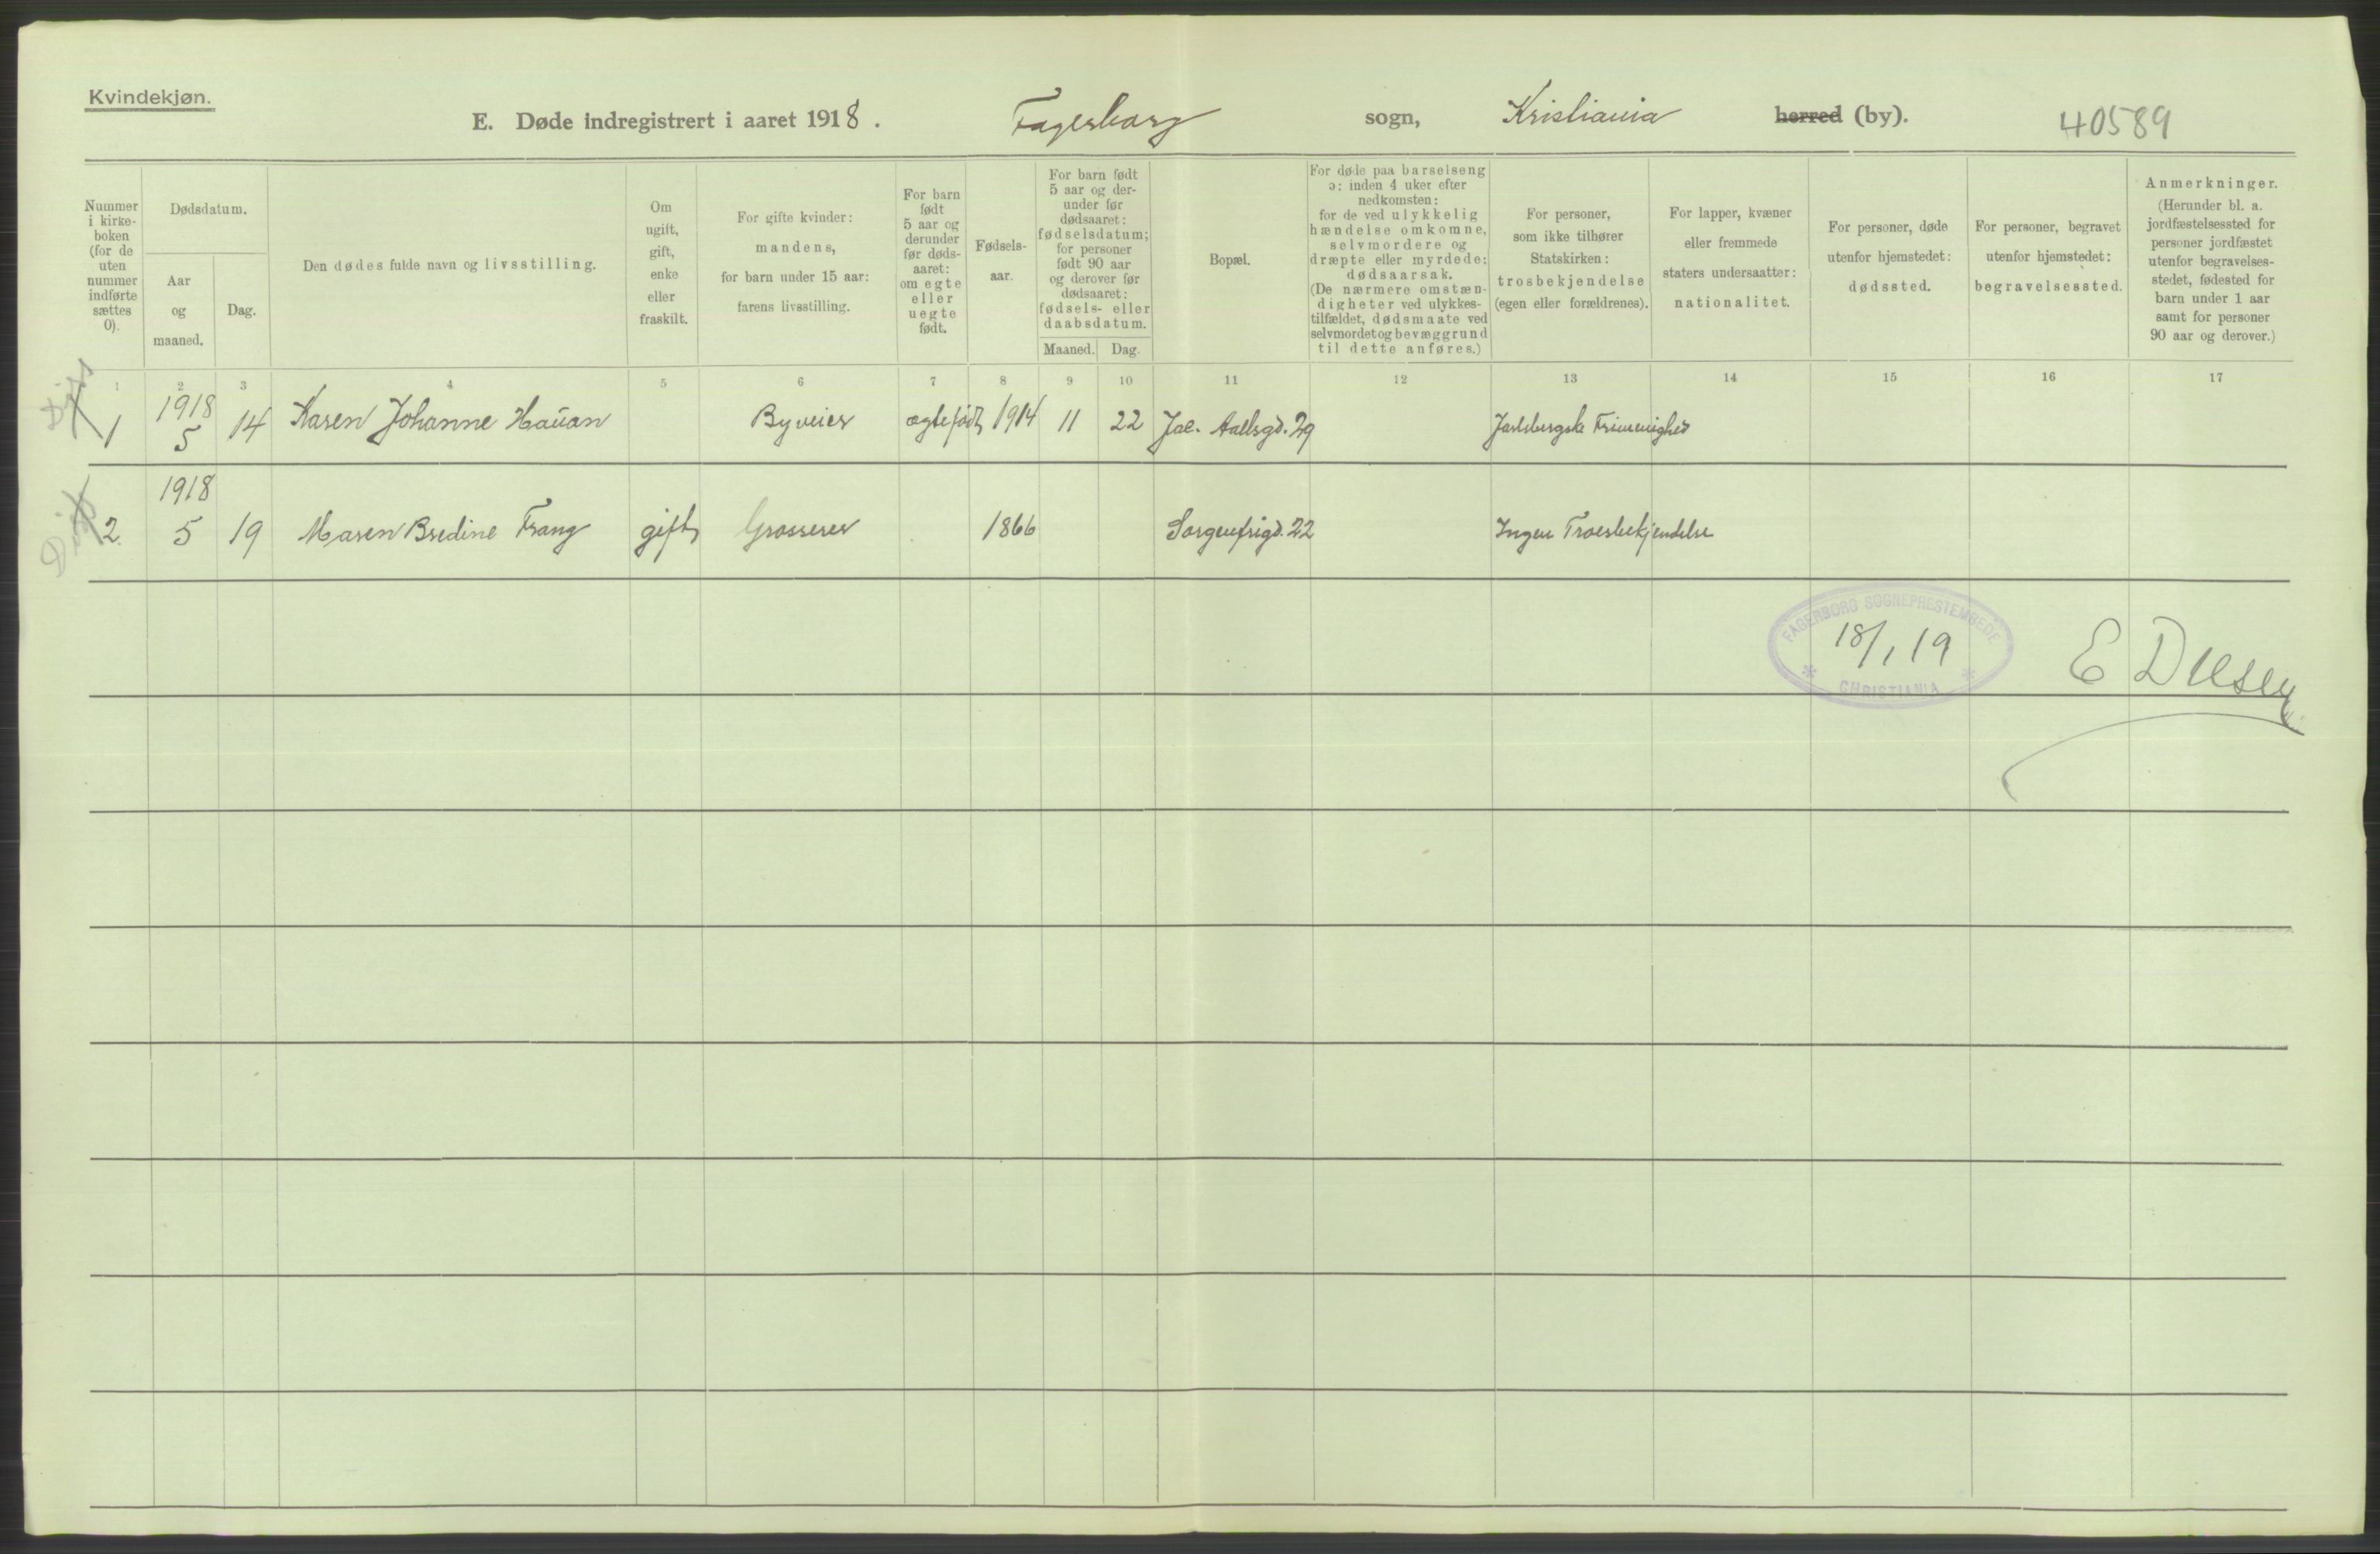 Kvindekjøn.
E. Døde indregistrert i aaret 1918. Fagerborg sogn, Kristiania herred (by). 40589
Nummer i kirke-boken (for de uten nummer indførte sættes 0).
Dødsdatum.
Aar og maaned.
Dag.
Den dødes fulde navn og livsstilling.
Om ugift, gift, enke eller fraskilt.
For gifte kvinder: mandens, for barn under 15 aar: farens livsstilling.
For barn født 5 aar og derunder før døds-aaret: om egte eller uegte født.
Fødsels-aar.
For barn født 5 aar og der-under før dødsaaret: fødselsdatum; for personer født 90 aar og derover før dødsaaret: fødsels- eller daabsdatum.
Maaned. Dag.
Bopæl.
For døde paa barselseng ɔ: inden 4 uker efter nedkomsten: for de ved ulykkelig hændelse omkomne, selvmordere og dræpte eller myrdede: dødsaarsak. (De nærmere omstæn-digheter ved ulykkes-tilfældet, dødsmaate ved selvmordet og bevæggrund til dette anføres.)
For personer, som ikke tilhører Statskirken: trosbekjendelse (egen eller forældrenes).
For lapper, kvæner eller fremmede staters undersaatter: nationalitet.
For personer, døde utenfor hjemstedet: dødssted.
For personer, begravet utenfor hjemstedet: begravelsessted.
Anmerkninger. (Herunder bl. a. jordfæstelsessted for personer jordfæstet utenfor begravelses-stedet, fødested for barn under 1 aar samt for personer 90 aar og derover.)
1 2 3 4 5 6 7 8 9 10 11 12 13 14 15 16 17
1 1918 5 14 Karen Johanne Hauan Byveier ægtefødt 1914 11 22 Jac. Aallsgd. 29 Jarlsbergske Frimenighed
2. 1918 5 19 Maren Bredine Frang gift Grosserer 1866 Sorgenfrigd. 22 Ingen Troesbekjendelse
FAGERBORG SOGNEPRESTEMBEDE
18/1 19
CHRISTIANIA
E Diesen